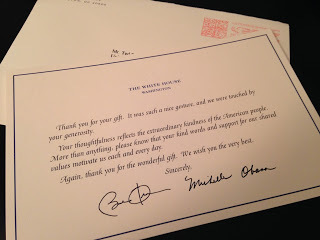 THE WHITE HOUSE
WASHINGTON
Thank you for your gift. It was such a nice gesture, and we were touched by
your generosity.
Your thoughtfulness reflects the extraordinary kindness of the American people.
More than anything, please know that your kind words and support for our shared
values motivate us each and every day.
Again, thank you for the wonderful gift. We wish you the very best.
Sincerely,
Michelle Obama